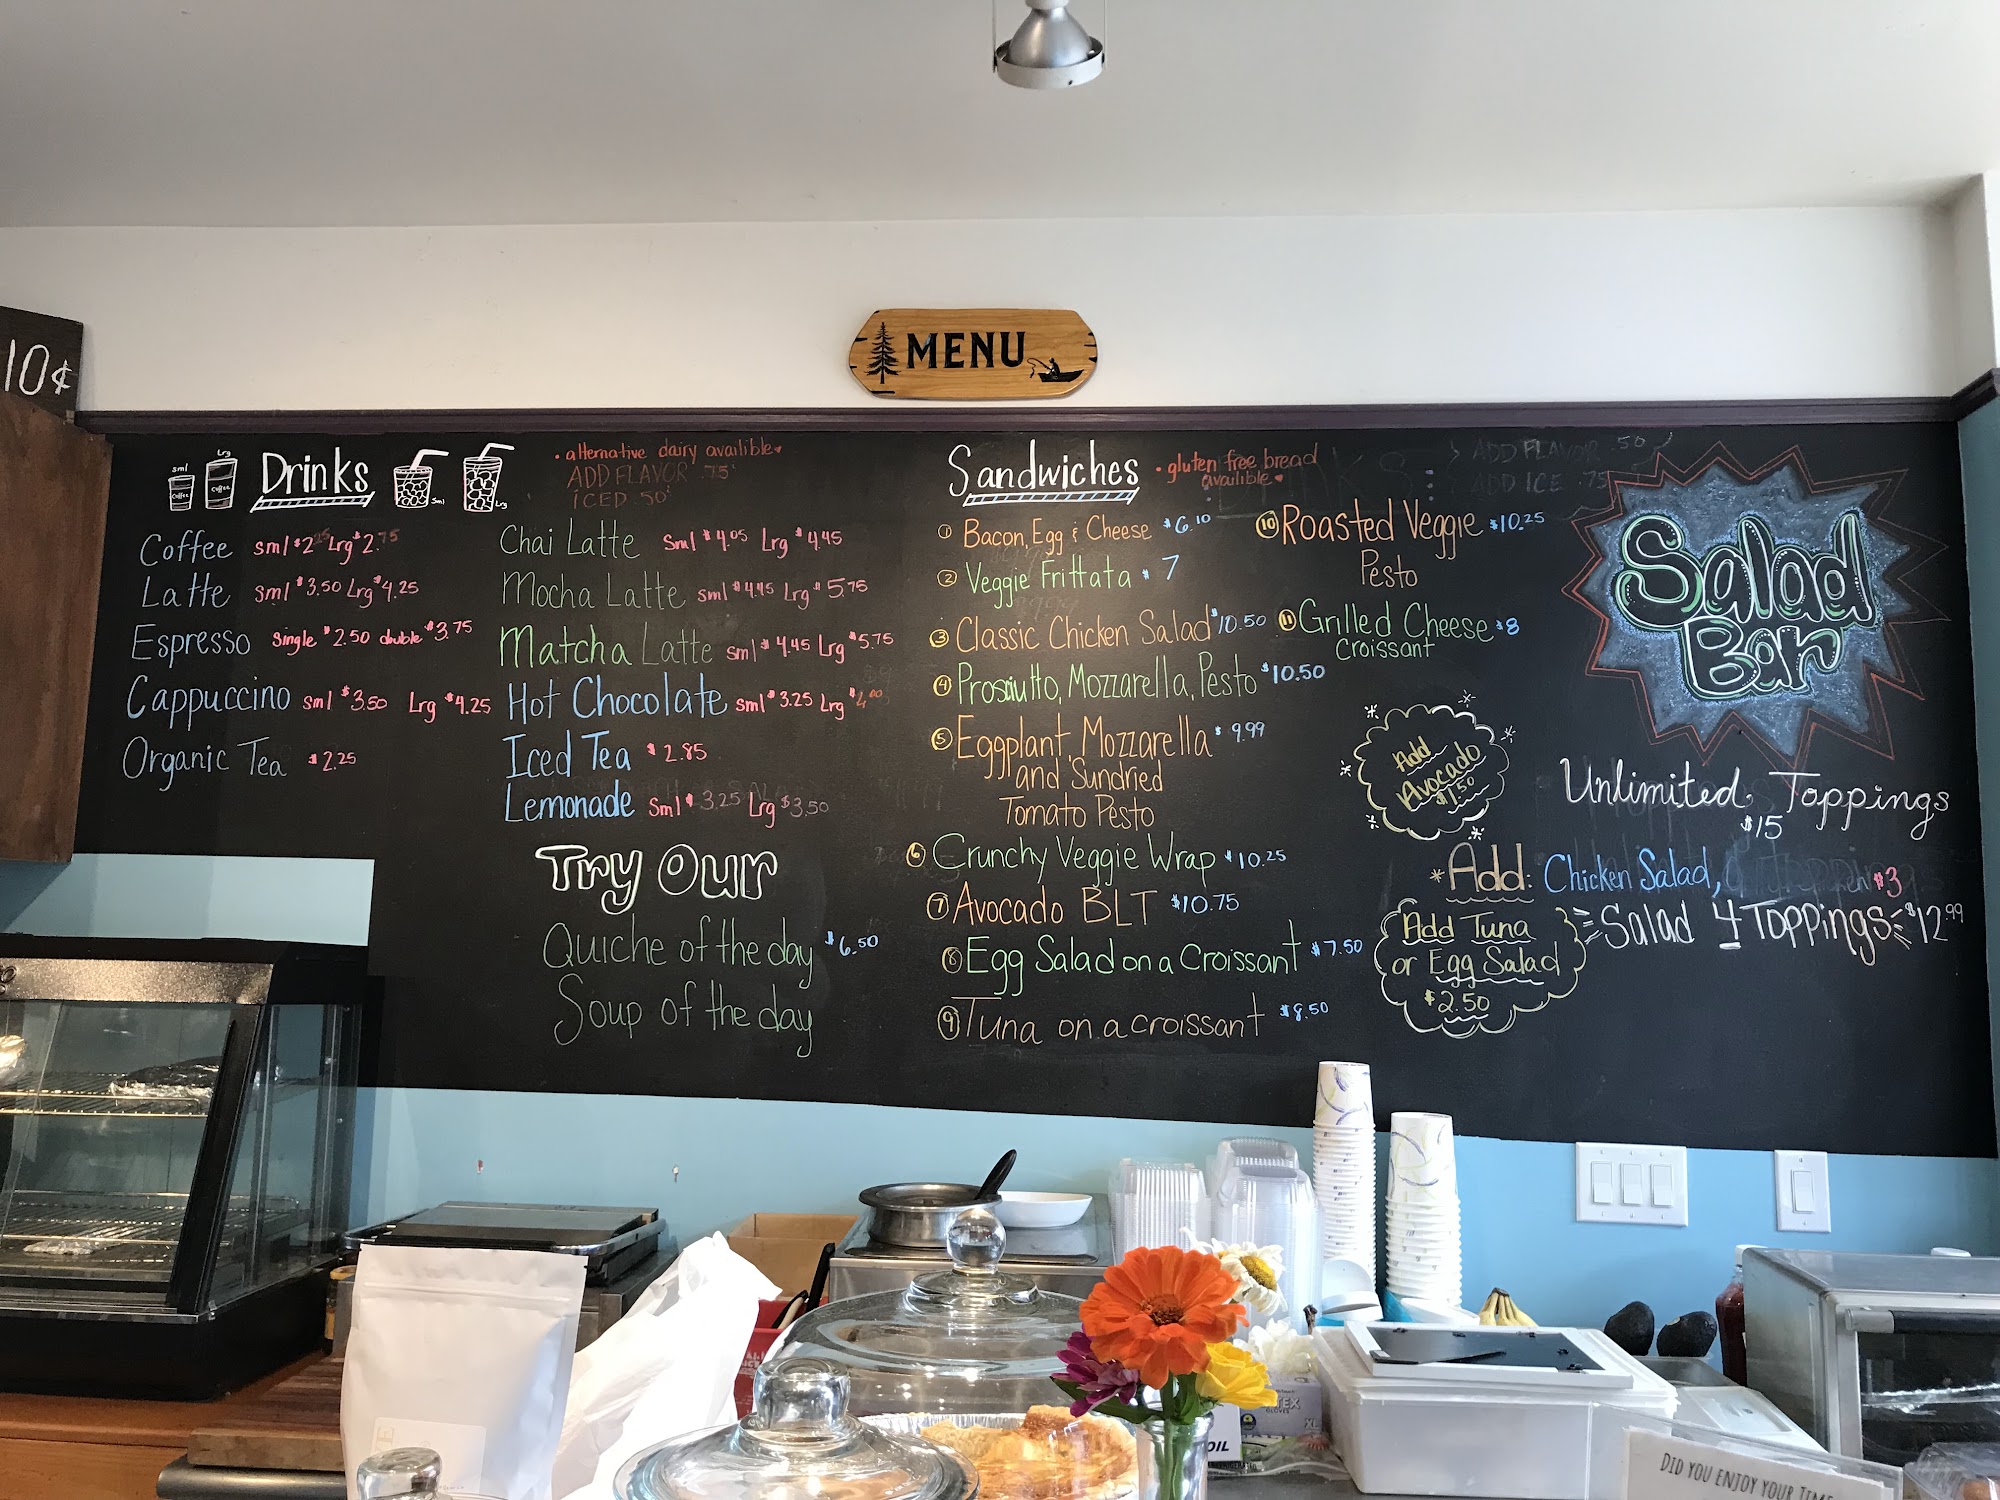 10¢
MENU
sml
Lrg
Coffee
Coffee
Drinks
sml
Lrg
• alternative dairy availible♥
ADD FLAVOR .75¢
ICED .50¢
Coffee sml $2.25 Lrg $2.75
Latte sml $3.50 Lrg $4.25
Espresso single $2.50 double $3.75
Cappuccino sml $3.50 Lrg $4.25
Organic Tea $2.25
Chai Latte sml $4.05 Lrg $4.45
Mocha Latte sml $4.45 Lrg $5.75
Matcha Latte sml $4.45 Lrg $5.75
Hot Chocolate sml $3.25 Lrg $4.00
Iced Tea $2.85
Lemonade sml $3.25 Lrg $3.50
Try Our
Quiche of the day $6.50
Soup of the day
Sandwiches
• gluten free bread
availible♥
① Bacon, Egg & Cheese $6.10
② Veggie Frittata $7
③ Classic Chicken Salad $10.50
④ Prosciutto, Mozzarella, Pesto $10.50
⑤ Eggplant, Mozzarella $9.99
and Sundried
Tomato Pesto
⑥ Crunchy Veggie Wrap $10.25
⑦ Avocado BLT $10.75
⑧ Egg Salad on a Croissant $7.50
⑨ Tuna on a croissant $8.50
⑩ Roasted Veggie $10.25
Pesto
⑪ Grilled Cheese $8
Croissant
Add
Avocado
$1.50
ADD FLAVOR .50
ADD ICE .75
Salad
Bar
Unlimited Toppings
$15
*Add: Chicken Salad, $3
Salad 4 Toppings $12.99
Add Tuna
or Egg Salad
$2.50
OIL
XL
GLOVES
DID YOU ENJOY YOUR TIME